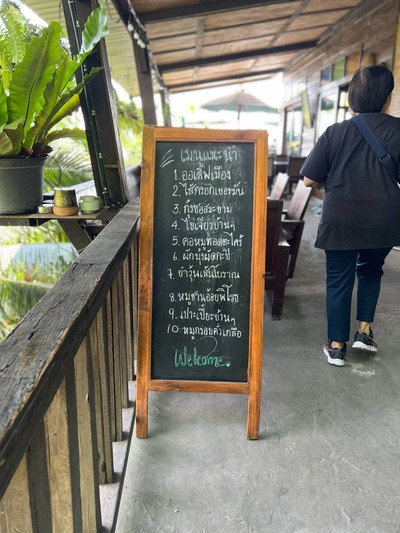 เมนูแนะนำ
1. ออเดิฟเมือง
2. ไส้กรอกเยอรมัน
3. กุ้งซอสมะขาม
4. ไข่เจียวบ้านๆ
5. คอหมูทอดตะไคร้
6. ผักบุ้งผัดกะปิ
7 ยำวุ้นเส้นโบราณ
8. หมูซานอ้อย
9. เปาะเปี๊ยะบ้านๆ
10. หมูกรอบคั่วเกลือ
Welcome